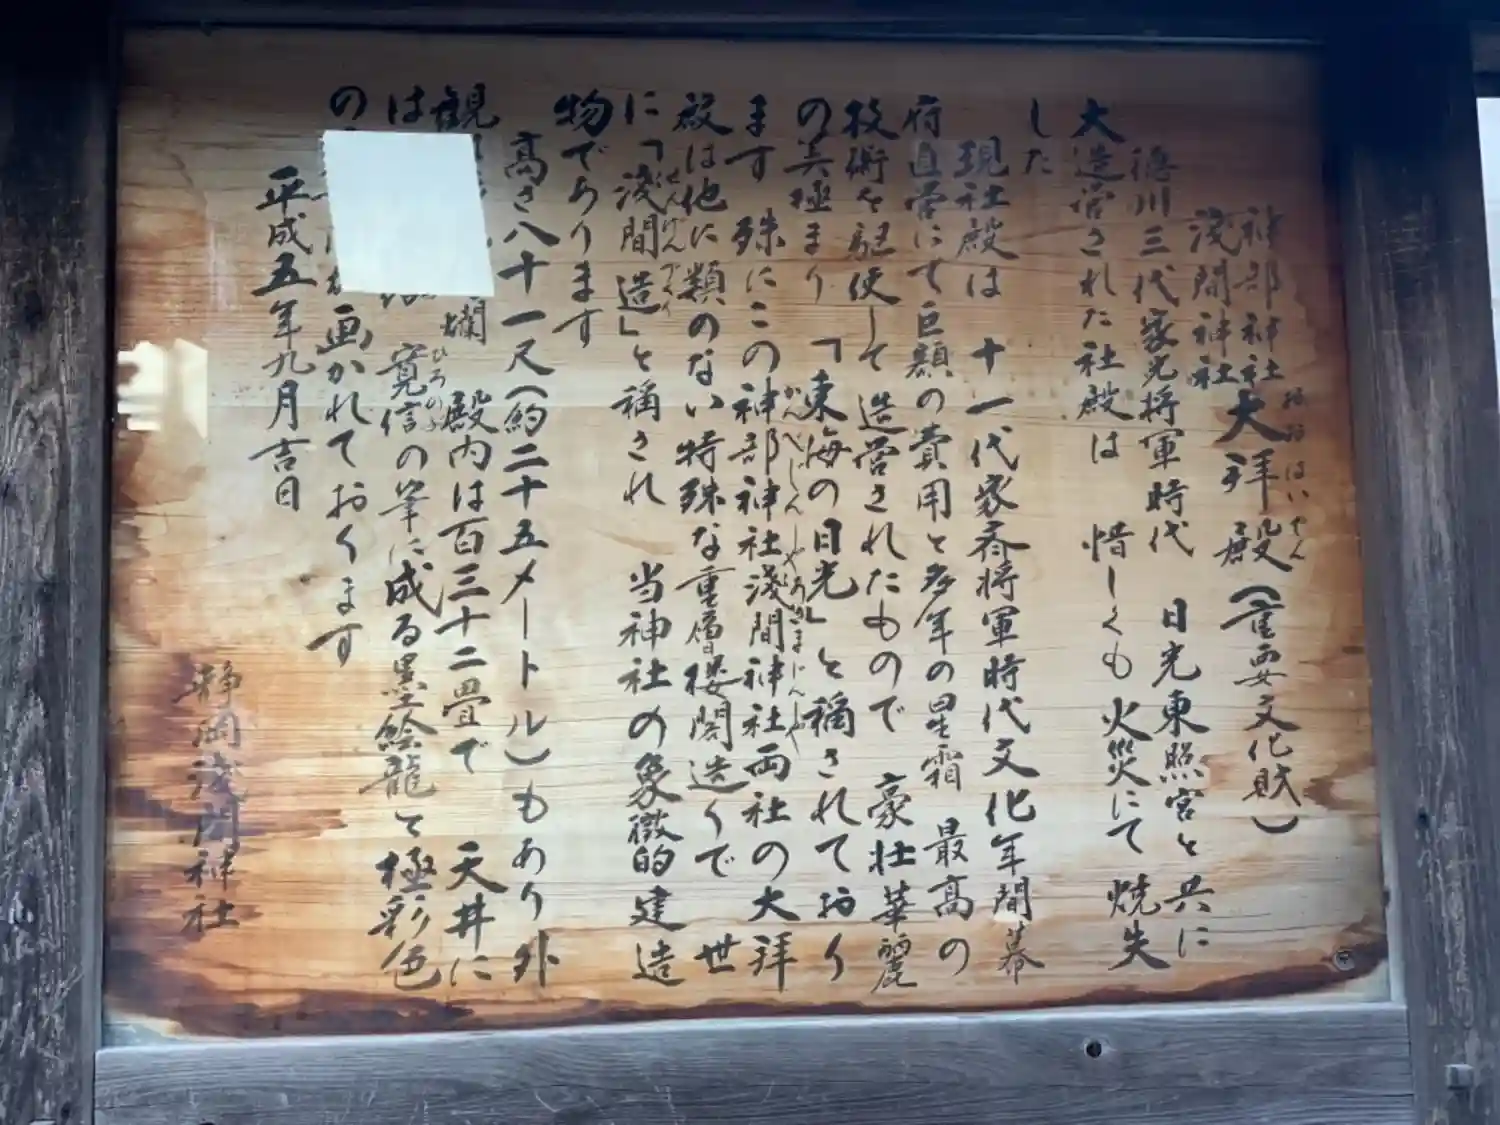 神部神社
浅間神社
大拝殿(重要文化財)
おおはいでん
徳川三代家光将軍時代 日光東照宮と共に
大造営された社殿は 惜しくも火災にて焼失
した
現社殿は 十一代家斉将軍時代文化年間幕
府直営にて巨額の費用と多年の星霜 最高の
技術を駆使して造営されたもので 豪壮華麗
の美極まり 「東海の日光」と稱されており
ます 殊にこの神部神社浅間神社両社の大拝
かんべじんじゃ
殿は他に類のない特殊な重層楼閣造りで 世
に「浅間造」と稱され 当神社の象徴的建造
せんげんづくり
物であります
高さ八十一尺(約二十五メートル)もあり外
観 爛 殿内は百三十二畳で 天井に
は 寛信の筆に成る墨絵龍と極彩色
ひろのぶ
の 画かれております
平成五年九月吉日
静岡浅間神社